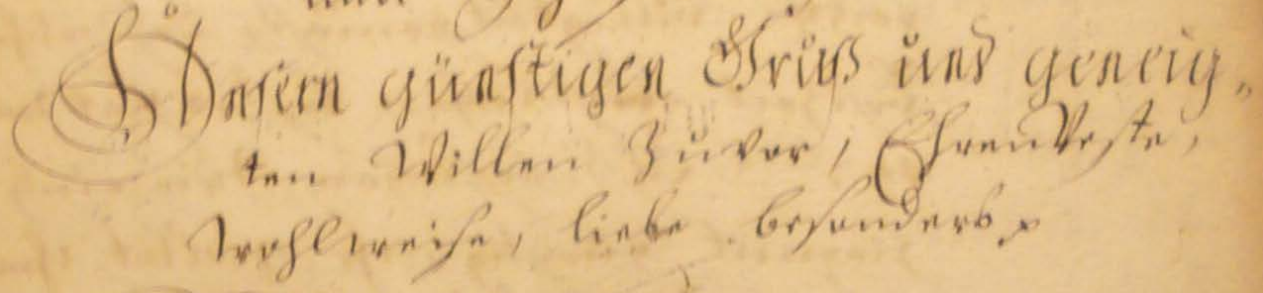 Unsern günstigen Gruß und geneig„
ten Willen Zuvor, EhrenVeste,
Wohlweise, liebe besonders